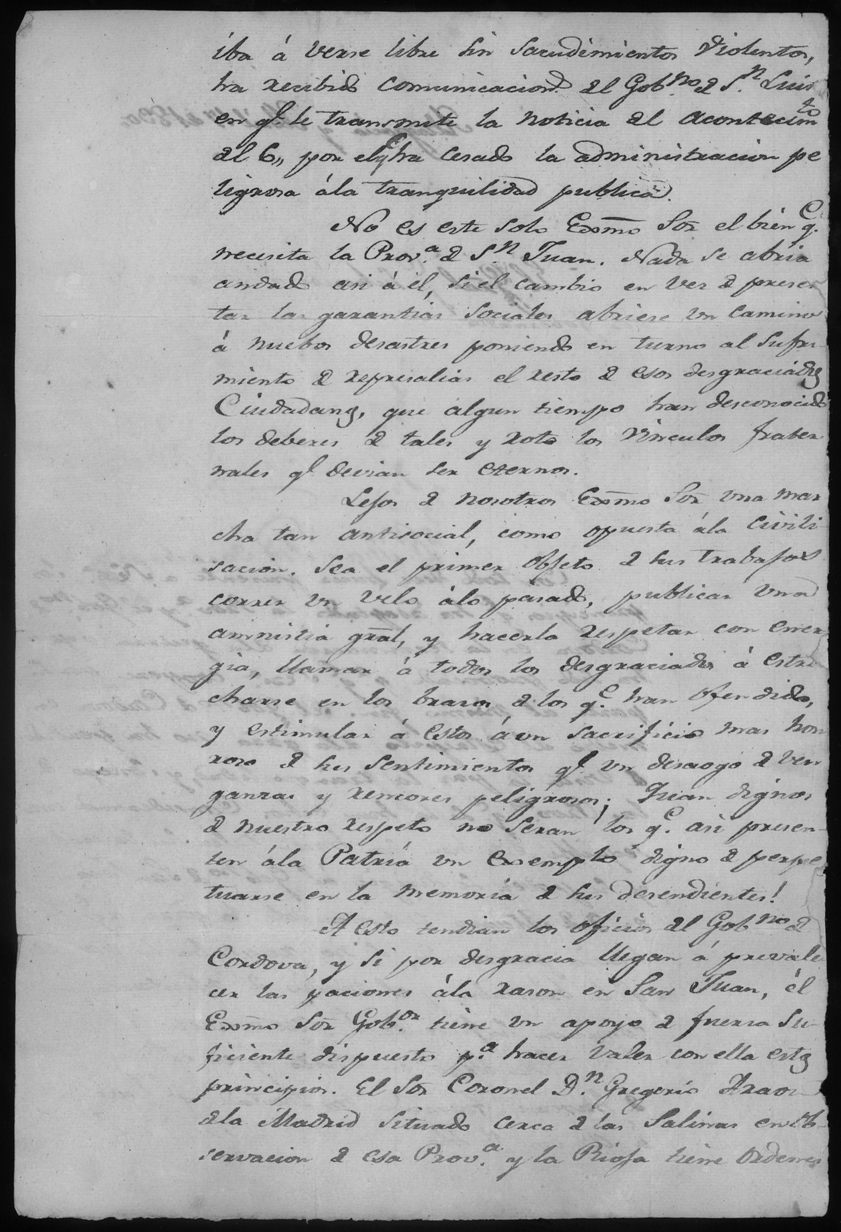 iba á verse libre sin sacudimientos violentos,
ha recibido comunicacion.s del Gob.no d S.n Luis
en q.e le transmite la noticia del acontecim.to
del 6,, por el q.e ha cesado la administracion pe
ligrosa á la tranquilidad publica.
No es este solo Exmo Sor el bien q.e
necesita la Prov.a d S.n Juan. Nada se abria
andado asi á él, si el cambio en vez d presen
tar las garantias sociales abriese un camino
á nuebos desastres poniendo en turno al sufri
miento d represalias el resto d esos desgraciados
Ciudadanos, que algun tiempo han desconocido
los deberes d tales y roto los vinculos frater
nales q.e devian ser eternos.
Lejos d nosotros Exmo Sor una mar
cha tan antisocial, como opuesta á la Civili
sacion. Sea el primer objeto d sus trabajos
correr un velo á lo pasado, publicar una
amnistia gral, y hacerla respetar con ener
gia, llamar á todos los desgraciados á estre
charse en los brazos d los q.e han ofendido,
y estimular á estos á un sacrificio mas hon
roso d sus sentimientos q.e un desaogo d ven
ganzas y rencores peligrosos; Quan dignos
d nuestro respeto no seran los q.e asi presen
ten á la Patria un exsemplo digno d perpe
tuarse en la memoria d sus desendientes!
A esto tendian los oficios del Gob.no d
Cordova, y si por desgracia llegan á prevale
cer las paciones á la rason en San Juan, él
Exmo Sor Gob.or tiene un apoyo d fuerza su
ficiente dispuesto p.a hacer valer con ella estos
principios. El Sor Coronel D.n Gregorio Araoz
d la Madrid situado cerca d las Salinas en ob
servacion d esa Prov.a y la Rioja tiene ordenes